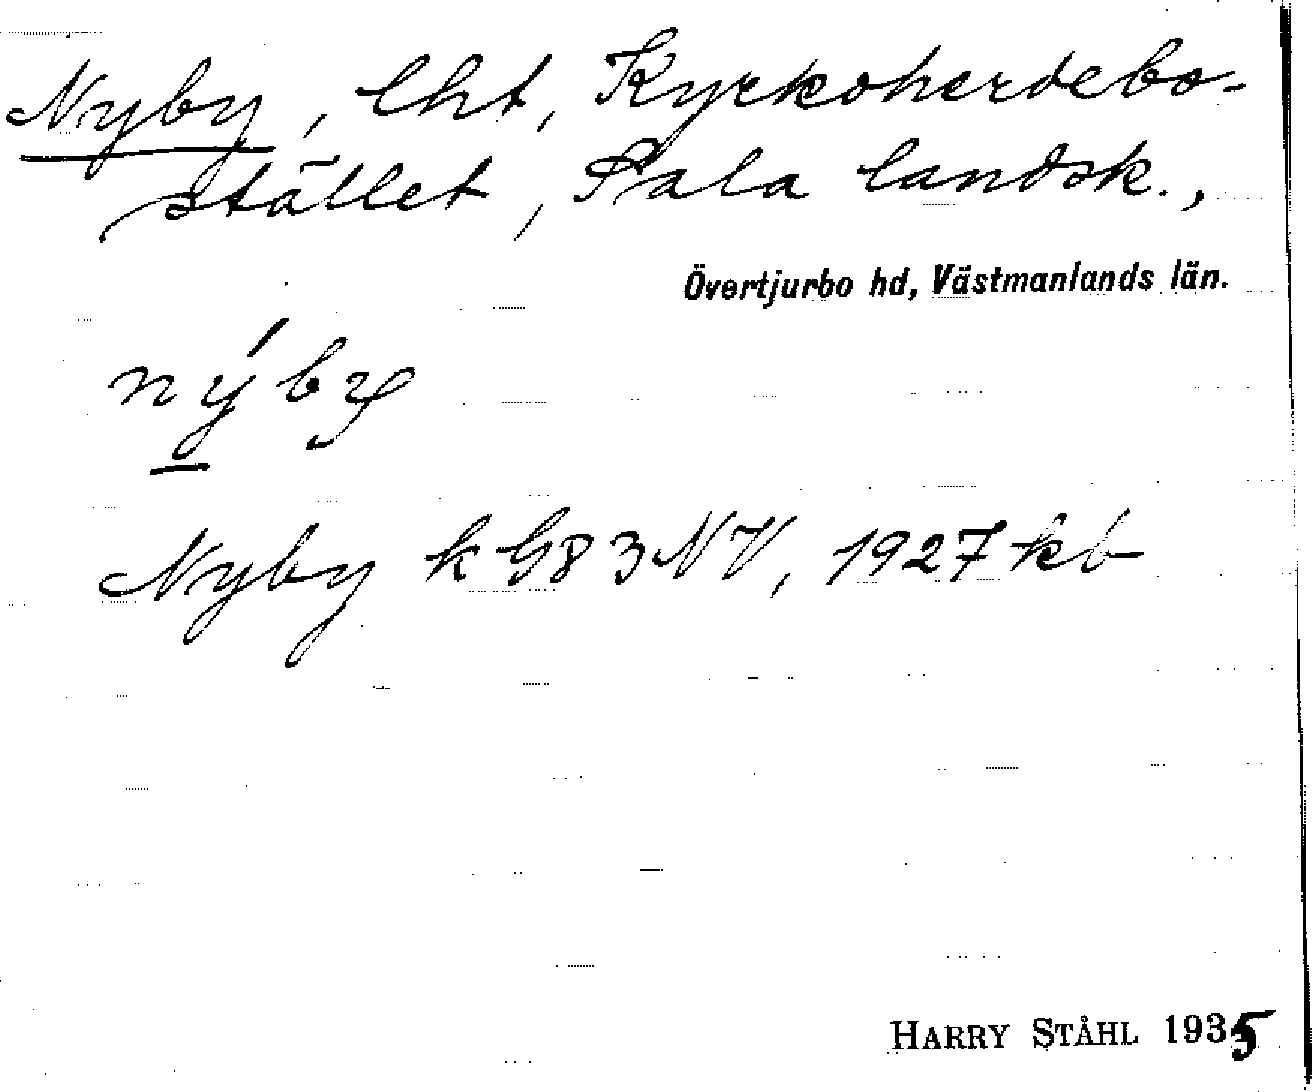 Nyby, lht, Kyrkoherdebo-
stället, Sala landsk.,
Övertjurbo hd, Västmanlands län.
nýby
Nyby k G83NV, 1927 kb
HARRY STÅHL 1935